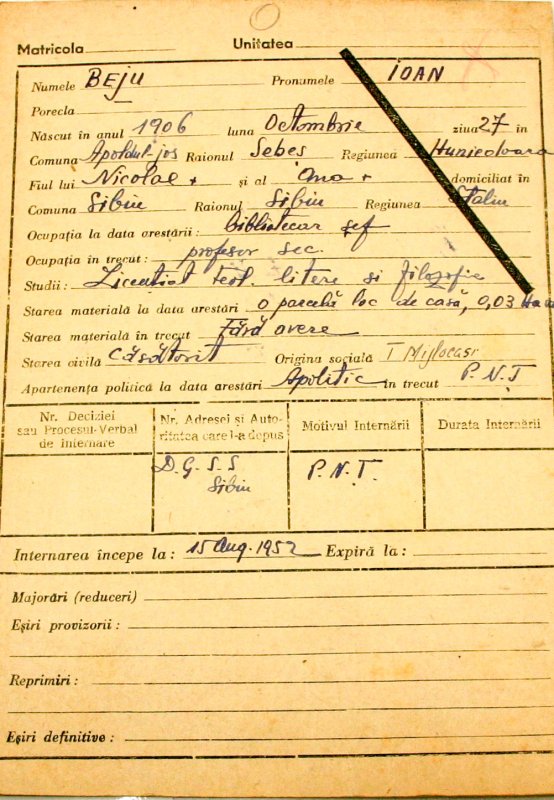 Matricola Unitatea
Numele BEJU Pronumele IOAN
Porecla
Născut în anul 1906 luna Octombrie ziua 27 în
Comuna Apoldul-jos Raionul Sebeș Regiunea Hunedoara
Fiul lui Nicolae + și al Ana + domiciliat în
Comuna Sibiu Raionul Sibiu Regiunea Stalin
Ocupația la data arestării: bibliotecar șef
Ocupația în trecut: profesor sec.
Studii: Licențiat teol. litere și filozofie
Starea materială la data arestări o parcelă loc de casă, 0,03 Ha
Starea materială în trecut Fără avere
Starea civilă Căsătorit Origina socială T Mijlocași
Apartenența politică la data arestări Apolitic în trecut P.N.T
Nr. Deciziei
sau Procesul-Verbal
de Internare
Nr. Adresei și Auto-
ritatea care l-a depus
Motivul Internării
Durata Internării
D.G.S.S
Sibiu
P.N.T.
Internarea începe la: 15 Aug. 1952 Expiră la:
Majorări (reduceri)
Eșiri provizorii:
Reprimiri:
Eșiri definitive: